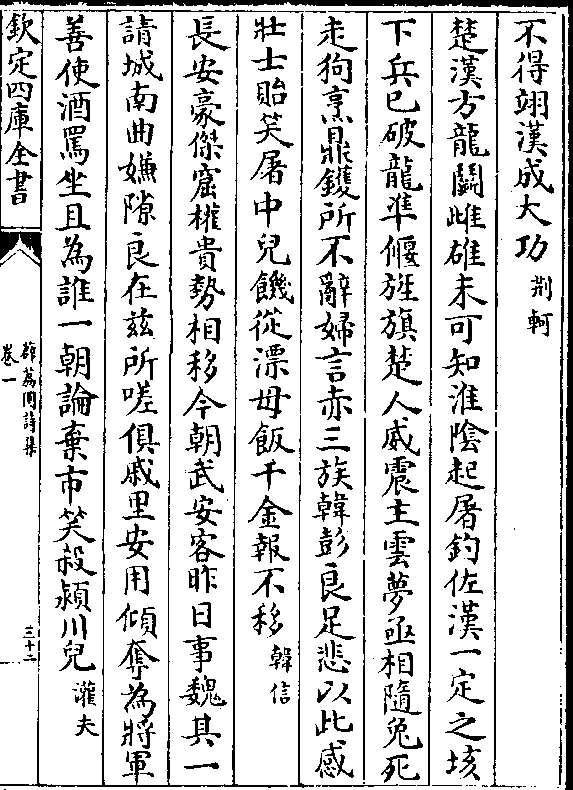 不得翊漢成大功荆軻
楚漢方龍鬭雌雄未可知淮陰起屠釣佐漢一定之垓
下兵已破龍準偃旌旗楚人威震主雲夢亟相隨兔死
走狗烹鼎鑊所不辭婦言赤三族韓彭良足悲以此感
壯士貽笑屠中兒饑從漂母飯千金報不移韓信
長安豪傑窟權貴勢相移今朝武安客昨日事魏其一
請城南曲嫌隙良在兹所嗟俱戚里安用傾奪為將軍
善使酒罵坐且為誰一朝論棄市笑殺潁川兒灌夫
欽定四庫全書
薛荔園詩集
卷一
三十二